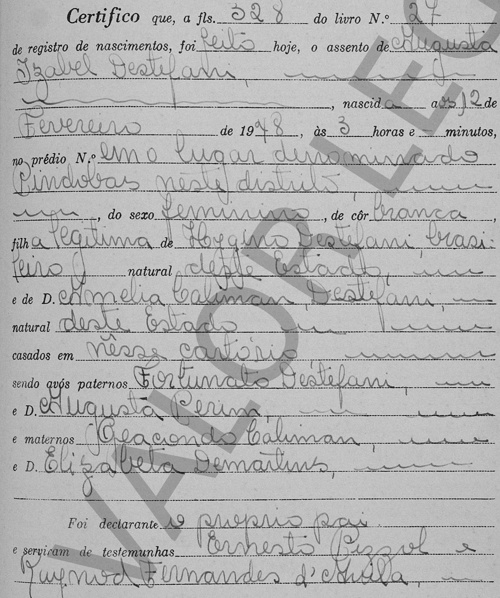 Certifico que, a fls. 328 do livro N.º 27
de registro de nascimentos, foi feito hoje, o assento de Augusta
Izabel Destefani,
, nascida aos 12 de
Fevereiro de 1948, às 3 horas e minutos,
no prédio N.º em o lugar denominado
Pindobas neste distrito
, do sexo feminino, de côr branca,
filha legitima de Hygino Destefani, brasi-
leiro natural deste Estado,
e de D. Amelia Caliman Destefani,
natural deste Estado
casados em nêsse cartório,
sendo avós paternos Fortunato Destefani,
e D. Augusta Perim,
e maternos Geacondo Caliman,
e D. Elizabeta Demartins,
Foi declarante o proprio pai
e serviram de testemunhas Ernesto e
Fernandes d'Avila,
VALOR LEG